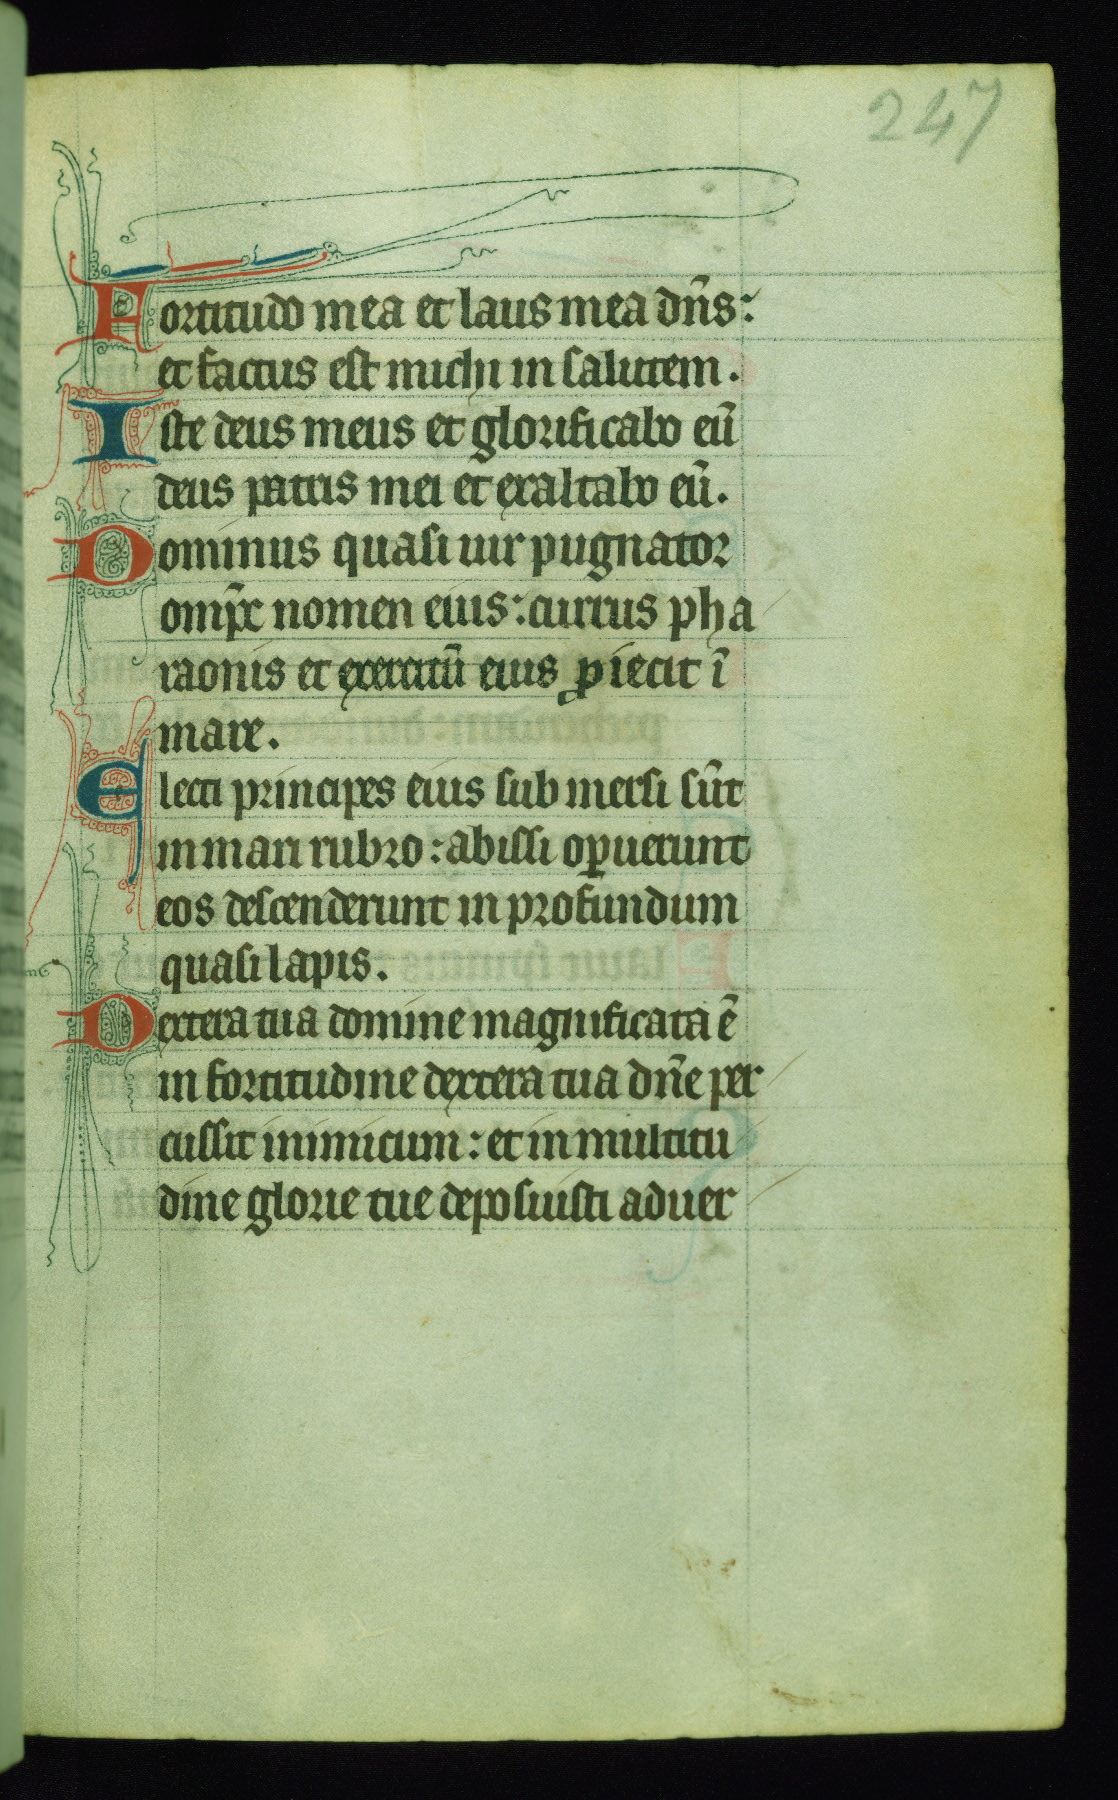 247
Fortitudo mea et laus mea dn̄s:
et factus est michi in salutem.
Iste deus meus et glorificabo eū
deus patris mei et exaltabo eū.
Dominus quasi uir pugnator
omp̄s nomen eius: currus pha
raonis et exercitū eius ꝓiecit ī
mare.
Electi principes eius sub mersi sūt
in mari rubro: abissi oꝑuerunt
eos descenderunt in profundum
quasi lapis.
Dextera tua domine magnificata ē
in fortitudine dextera tua dn̄e per
cussit inimicum: et in multitu
dine glorie tue deposuisti aduer